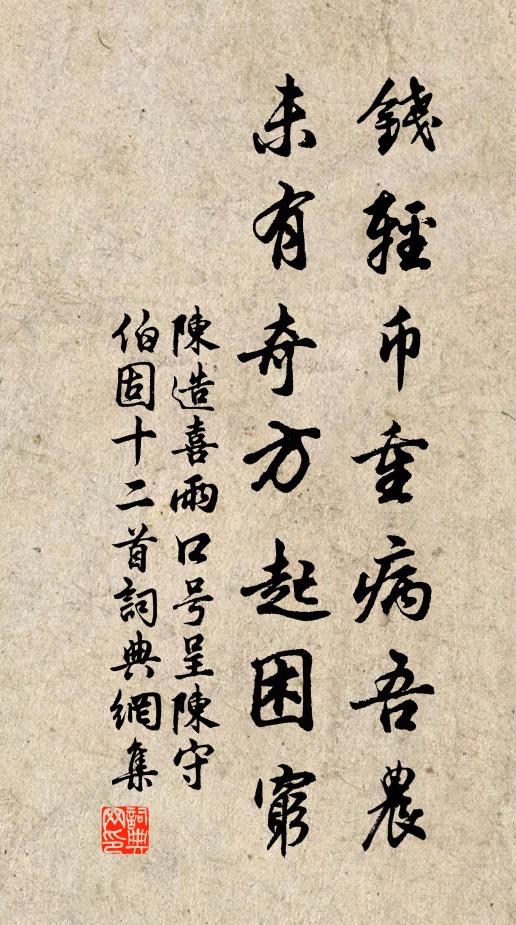 錢輕币重病吾農
未有奇方起困窮
陳造喜雨口号呈陳守
伯固十二首詞典網集
詞典
网印